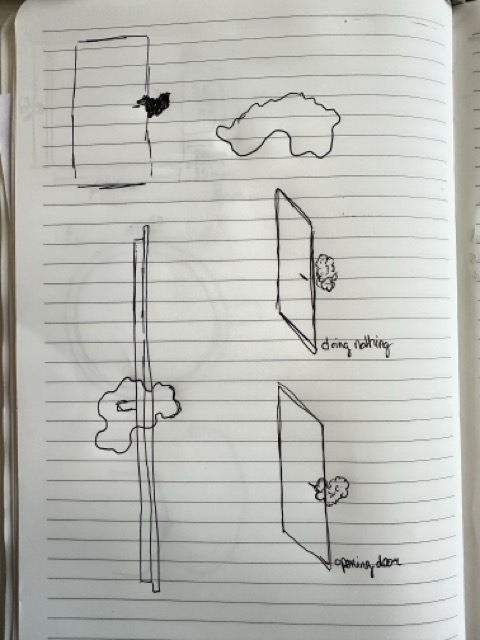 doing nothing
opening door